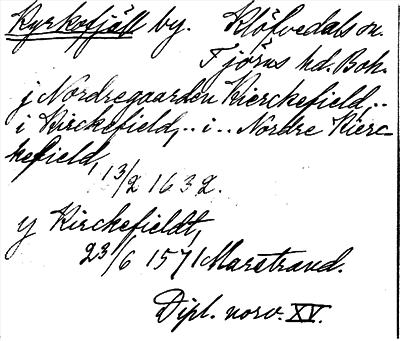 Kyrkefjäll by. Klöfvedals sn.
Tjörns hd. Boh.
j Nordregaarden Kierckefield,..
i Kirckefield,.. i.. Nordre Kierc-
kefield,
13/2 1632.
y Kirckefieldt,
23/6 1571 Marstrand.
Dipl. norv. XV.